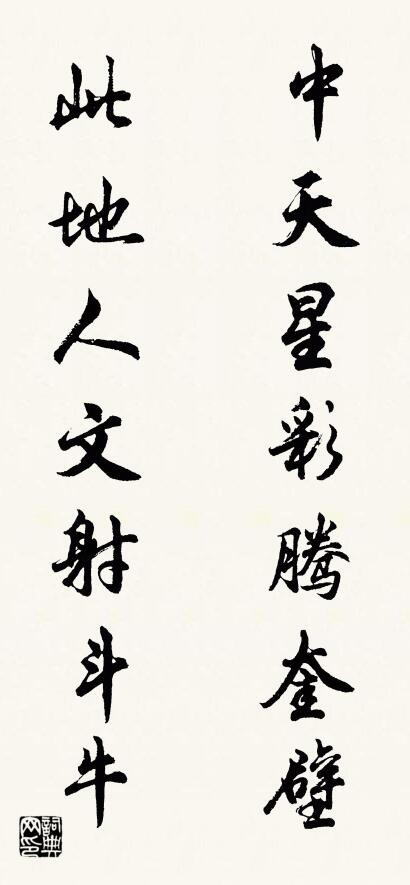 中天星彩腾奎壁
此地人文射斗牛
詞典网印